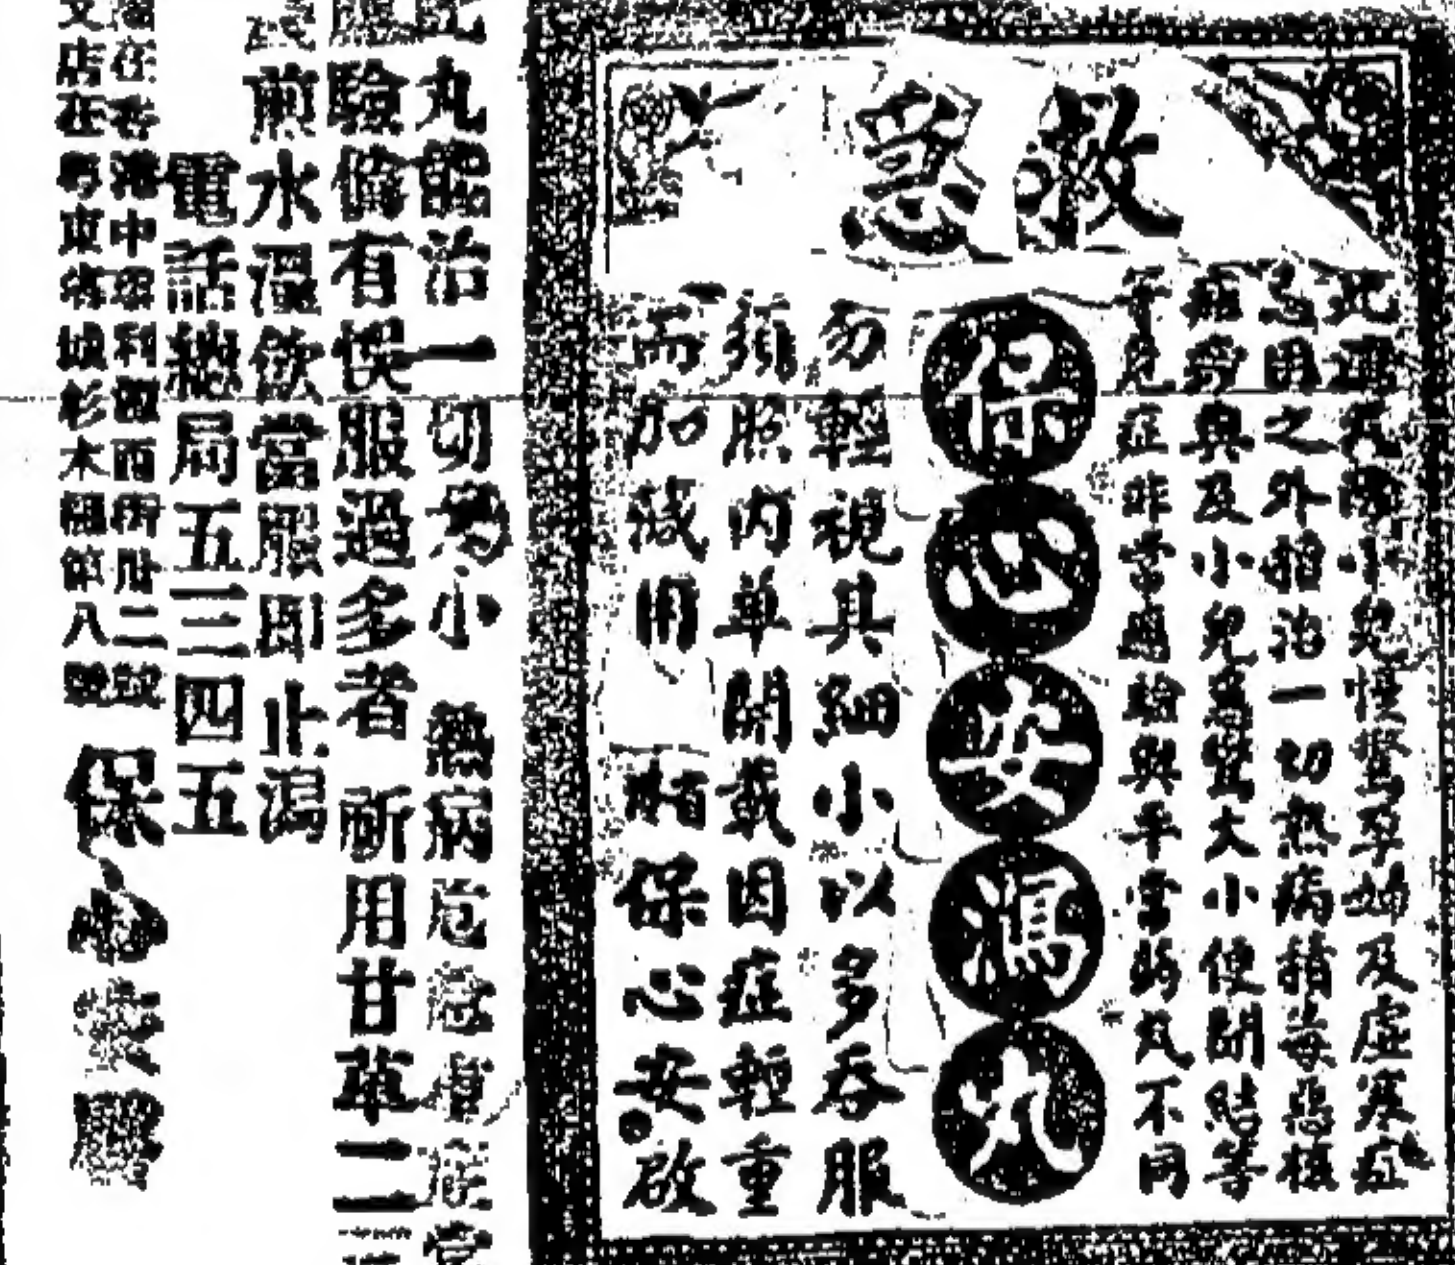 救急
此還元除小兒慢驚孕婦及虛寒症
忌用之外指治一切熱病積毒惡核
瘟疫與及小兒急驚大小便閉結等
等危症非常應驗與平常的丸不同
保心安瀉丸
勿輕視其細小以多吞服
須照內單開載因症輕重
而加減用
相保心安啟
此丸能治一切為小 熱病危急
應驗倘有悞服過多者 所用甘草二
煎水溫飲當服即止瀉
電話總局五三四五
在香港中環利源西街卅二號
支店在粵東省城杉木欄第八號
保心安